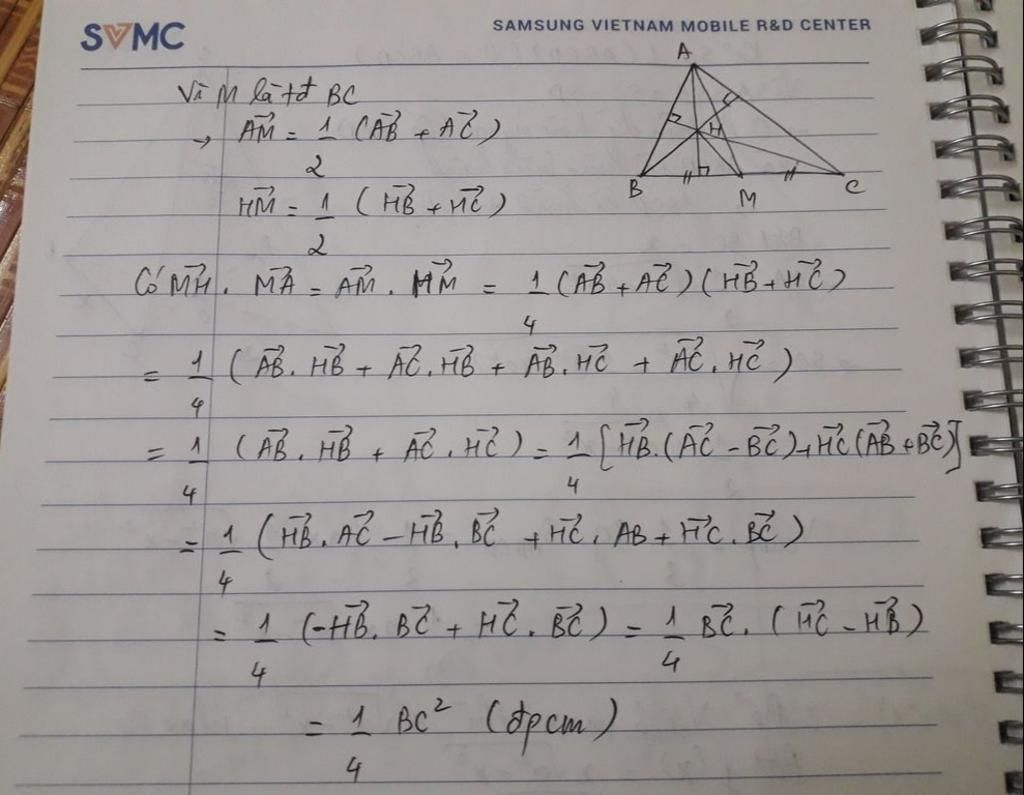 SVMC
SAMSUNG VIETNAM MOBILE R&D CENTER
A
H
B
M
C
Vì M là tđ BC
→ \vec{AM} = \frac{1}{2} (\vec{AB} + \vec{AC})
\vec{HM} = \frac{1}{2} (\vec{HB} + \vec{HC})
Có \vec{MH} . \vec{MA} = \vec{AM} . \vec{HM} = \frac{1}{4} (\vec{AB} + \vec{AC}) (\vec{HB} + \vec{HC})
= \frac{1}{4} (\vec{AB} . \vec{HB} + \vec{AC} . \vec{HB} + \vec{AB} . \vec{HC} + \vec{AC} . \vec{HC})
= \frac{1}{4} (\vec{AB} . \vec{HB} + \vec{AC} . \vec{HC}) = \frac{1}{4} [\vec{HB} . (\vec{AC} - \vec{BC}) + \vec{HC} (\vec{AB} + \vec{BC})]
= \frac{1}{4} (\vec{HB} . \vec{AC} - \vec{HB} . \vec{BC} + \vec{HC} . AB + \vec{HC} . \vec{BC})
= \frac{1}{4} (-\vec{HB} . \vec{BC} + \vec{HC} . \vec{BC}) = \frac{1}{4} \vec{BC} . (\vec{HC} - \vec{HB})
= \frac{1}{4} BC² (đpcm)